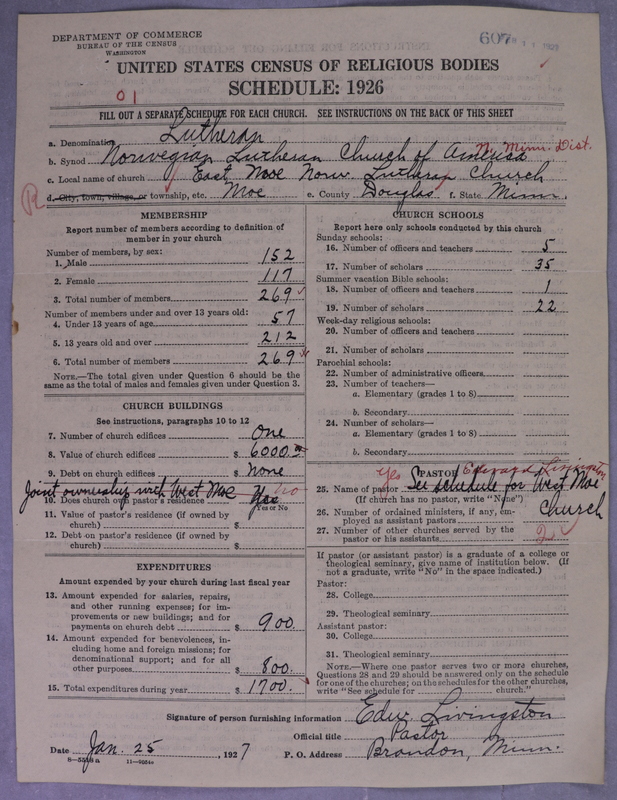 DEPARTMENT OF COMMERCE
BUREAU OF THE CENSUS
WASHINGTON
607
UNITED STATES CENSUS OF RELIGIOUS BODIES
SCHEDULE: 1926
01
FILL OUT A SEPARATE SCHEDULE FOR EACH CHURCH. SEE INSTRUCTIONS ON THE BACK OF THIS SHEET
a. Denomination Lutheran
b. Synod Norwegian Lutheran Church of America N. Minn. Dist.
c. Local name of church East Moe Norw. Lutheran Church
d. City, town, village, or township, etc. Moe e. County Douglas f. State Minn.
MEMBERSHIP
Report number of members according to definition of
member in your church
Number of members, by sex:
1. Male 152
2. Female 117
3. Total number of members 269
Number of members under and over 13 years old:
4. Under 13 years of age 57
5. 13 years old and over 212
6. Total number of members 269
NOTE.—The total given under Question 6 should be the
same as the total of males and females given under Question 3.
CHURCH BUILDINGS
See instructions, paragraphs 10 to 12
7. Number of church edifices One
8. Value of church edifices $ 6000.00
9. Debt on church edifices $ None
Joint ownership with West Moe
10. Does church own pastor's residence Yes no
Yes or No
11. Value of pastor's residence (if owned by
church) $
12. Debt on pastor's residence (if owned by
church) $
EXPENDITURES
Amount expended by your church during last fiscal year
13. Amount expended for salaries, repairs,
and other running expenses; for im-
provements or new buildings; and for
payments on church debt $ 900.
14. Amount expended for benevolences, in-
cluding home and foreign missions; for
denominational support; and for all
other purposes $ 800.
15. Total expenditures during year $ 1700.
CHURCH SCHOOLS
Report here only schools conducted by this church
Sunday schools:
16. Number of officers and teachers 5
17. Number of scholars 35
Summer vacation Bible schools:
18. Number of officers and teachers 1
19. Number of scholars 22
Week-day religious schools:
20. Number of officers and teachers
21. Number of scholars
Parochial schools:
22. Number of administrative officers
23. Number of teachers—
a. Elementary (grades 1 to 8)
b. Secondary
24. Number of scholars—
a. Elementary (grades 1 to 8)
b. Secondary
yes PASTOR Edward Livingston
25. Name of pastor See schedule for West Moe
(If church has no pastor, write "None") church
26. Number of ordained ministers, if any, em-
ployed as assistant pastors
27. Number of other churches served by the
pastor or his assistants 2
If pastor (or assistant pastor) is a graduate of a college or
theological seminary, give name of institution below. (If
not a graduate, write "No" in the space indicated.)
Pastor:
28. College
29. Theological seminary
Assistant pastor:
30. College
31. Theological seminary
NOTE.—Where one pastor serves two or more churches,
Questions 28 and 29 should be answered only on the schedule
for one of the churches; on the schedules for the other churches,
write "See schedule for church."
Signature of person furnishing information Edw. Livingston
Official title Pastor
Date Jan. 25, 1927 P. O. Address Brandon, Minn.